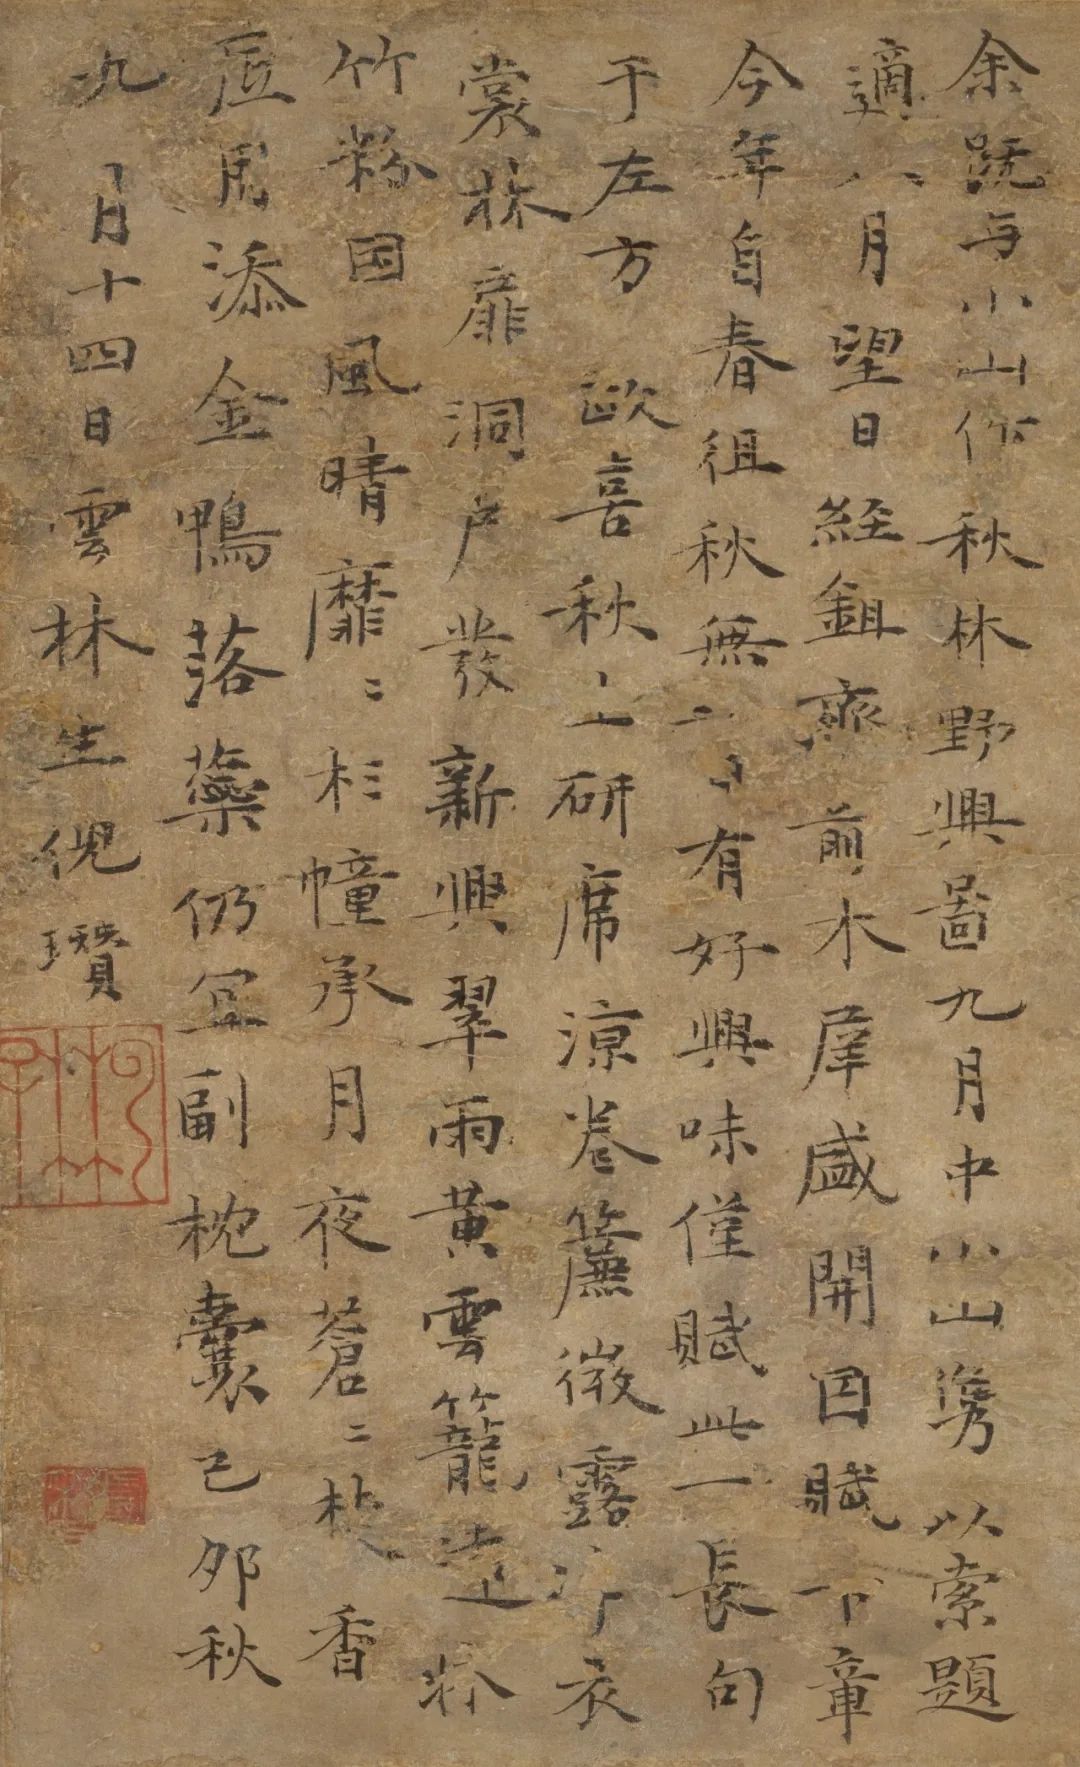 余既与小山作秋林野興啚九月中小山㩦以索題
適八月望日經鉏齋前木犀盛開因賦下章
今年自春徂秋無一日有好興味僅賦此一長句
于左方 政喜秋生研席涼卷簾微露淨衣
裳林扉洞户發新興翠雨黄雲籠遠牀
竹粉因風晴靡〻杉幢承月夜蒼〻焚香
底用添金鴨落蘂仍宜副枕囊己卯秋
九月十四日雲林生倪瓚